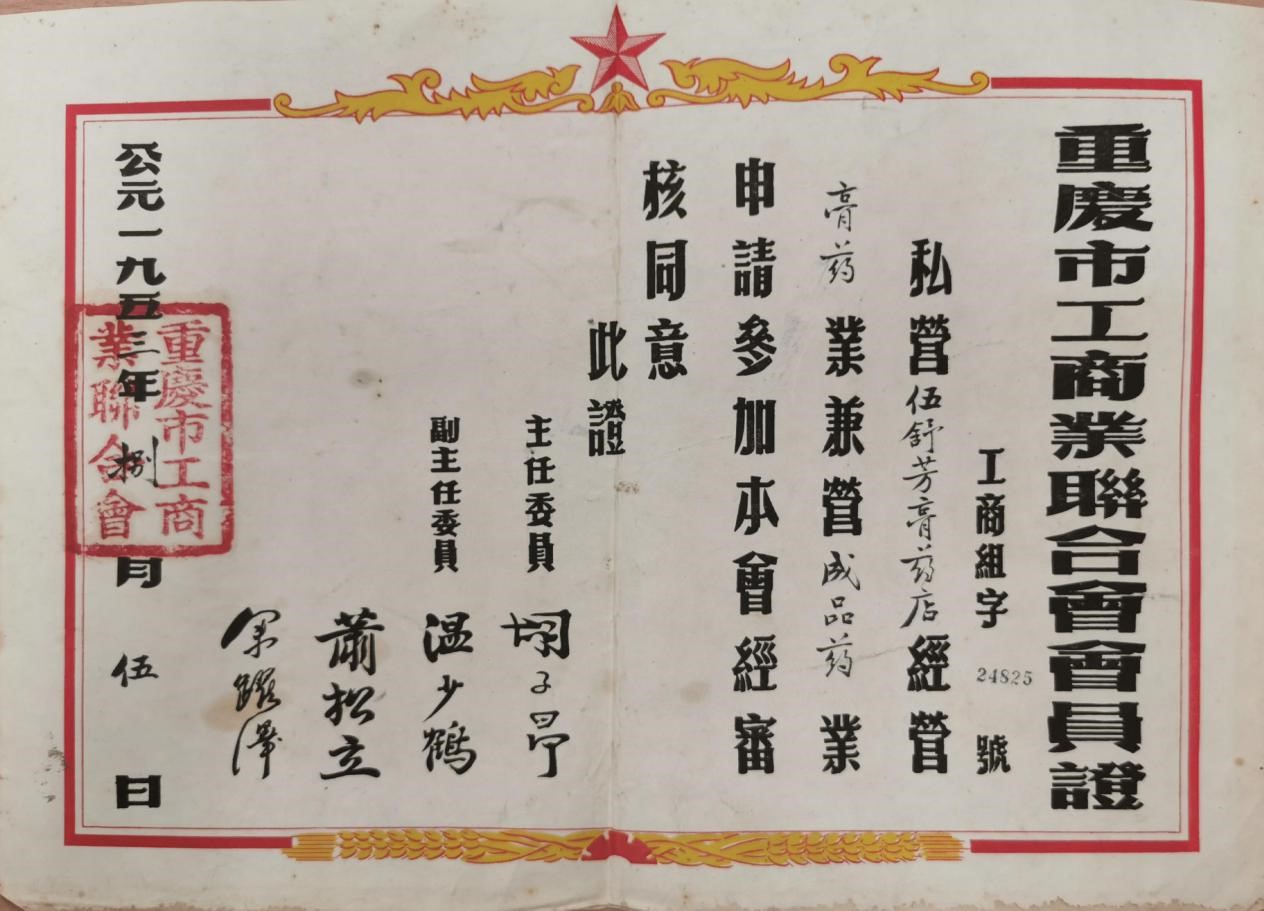 重慶市工商業聯合會會員證
工商組字24825號
私營伍舒芳膏药店經營
膏药業兼營成品药業
申請參加本會經審
核同意
此證
主任委員
副主任委員 温少鶴
蕭松立
公元一九五三年捌月伍日
重慶市工商
業聯合會